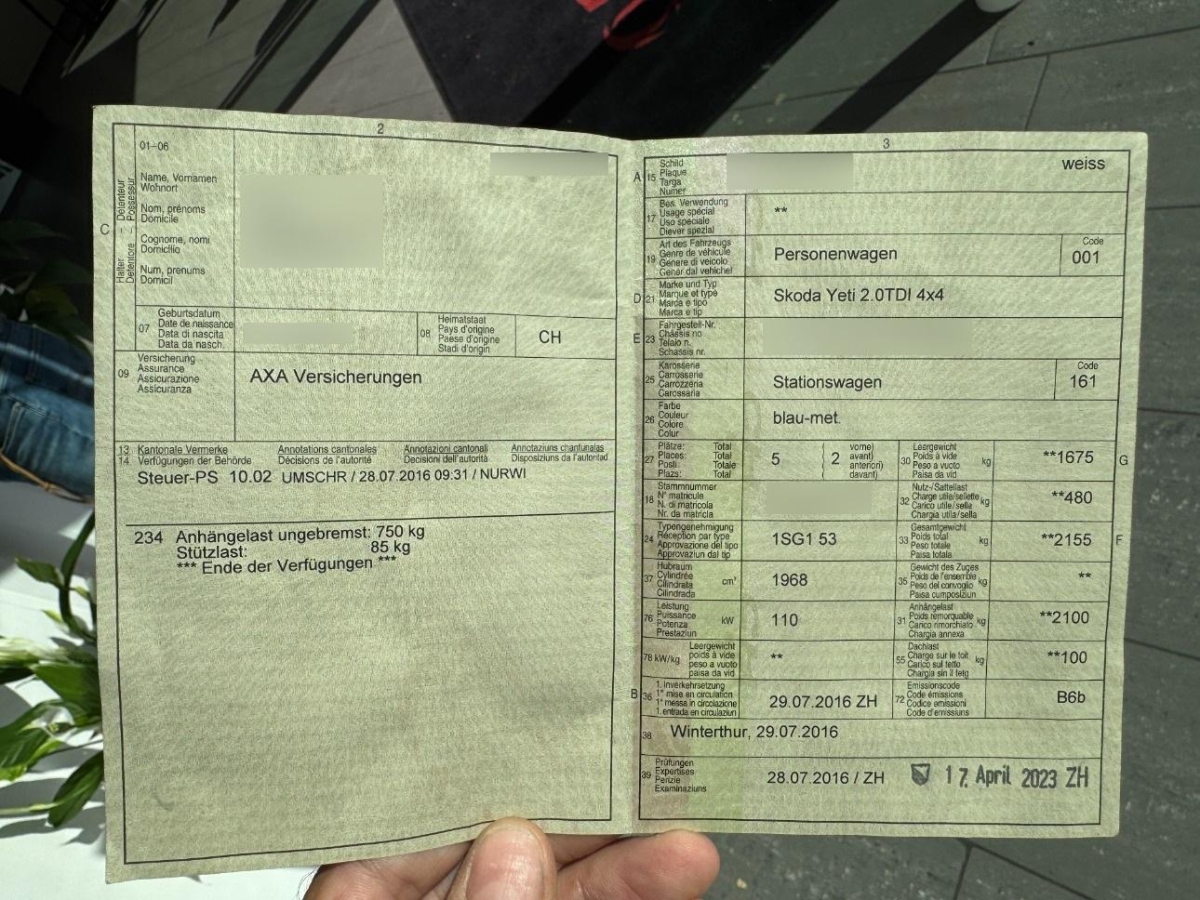 2
01-06
C
Halter – Détenteur
Detentore – Possessur
Name, Vornamen
Wohnort
Nom, prénoms
Domicile
Cognome, nomi
Domicilio
Num, prenums
Domicil
07
Geburtsdatum
Date de naissance
Data di nascita
Data da nasch.
08
Heimatstaat
Pays d'origine
Paese d'origine
Stadi d'origin
CH
09
Versicherung
Assurance
Assicurazione
Assicuranza
AXA Versicherungen
13 Kantonale Vermerke Annotations cantonales Annotazioni cantonali Annotaziuns chantunalas
14 Verfügungen der Behörde Décisions de l'autorité Decisioni dell'autorità Disposiziuns da l'autoritad
Steuer-PS 10.02 UMSCHR / 28.07.2016 09:31 / NURWI
234 Anhängelast ungebremst: 750 kg
Stützlast: 85 kg
*** Ende der Verfügungen ***
3
A 15
Schild
Plaque
Targa
Numer
weiss
17
Bes. Verwendung
Usage spécial
Uso speciale
Diever spezial
**
19
Art des Fahrzeugs
Genre de véhicule
Genere di veicolo
Gener dal vehichel
Personenwagen
Code
001
D 21
Marke und Typ
Marque et type
Marca e tipo
Marca e tip
Skoda Yeti 2.0TDI 4x4
E 23
Fahrgestell-Nr.
Châssis no
Telaio n.
Schassis nr.
25
Karosserie
Carrosserie
Carrozzeria
Carossaria
Stationswagen
Code
161
26
Farbe
Couleur
Colore
Colur
blau-met.
27
Plätze: Total
Places: Total
Posti: Totale
Plazs: Total
5
( 2
vorne)
avant)
anteriori)
davant)
30
Leergewicht
Poids à vide
Peso a vuoto
Paisa da vid
kg
**1675
G
18
Stammnummer
N° matricule
N. di matricola
Nr. da matricla
32
Nutz-/Sattellast
Charge utile/sellette
Carico utile/sella
Chargia utila/sella
kg
**480
24
Typengenehmigung
Réception par type
Approvazione del tipo
Approvaziun dal tip
1SG1 53
33
Gesamtgewicht
Poids total
Peso totale
Paisa totala
kg
**2155
F
37
Hubraum
Cylindrée
Cilindrata
Cilindrada
cm³
1968
35
Gewicht des Zuges
Poids de l'ensemble
Peso del convoglio
Paisa cumposiziun
kg
**
76
Leistung
Puissance
Potenza
Prestaziun
kW
110
31
Anhängelast
Poids remorquable
Carico rimorchiato
Chargia annexa
kg
**2100
78 kW/kg
Leergewicht
poids à vide
peso a vuoto
paisa da vid
**
55
Dachlast
Charge sur le toit
Carico sul tetto
Chargia sin il tetg
kg
**100
B 36
1. Inverkehrsetzung
1re mise en circulation
1a messa in circolazione
1. entrada en circulaziun
29.07.2016 ZH
72
Emissionscode
Code émissions
Codice emissioni
Code d'emissiuns
B6b
38
Winterthur, 29.07.2016
39
Prüfungen
Expertises
Perizie
Examinaziuns
28.07.2016 / ZH
17. April 2023 ZH